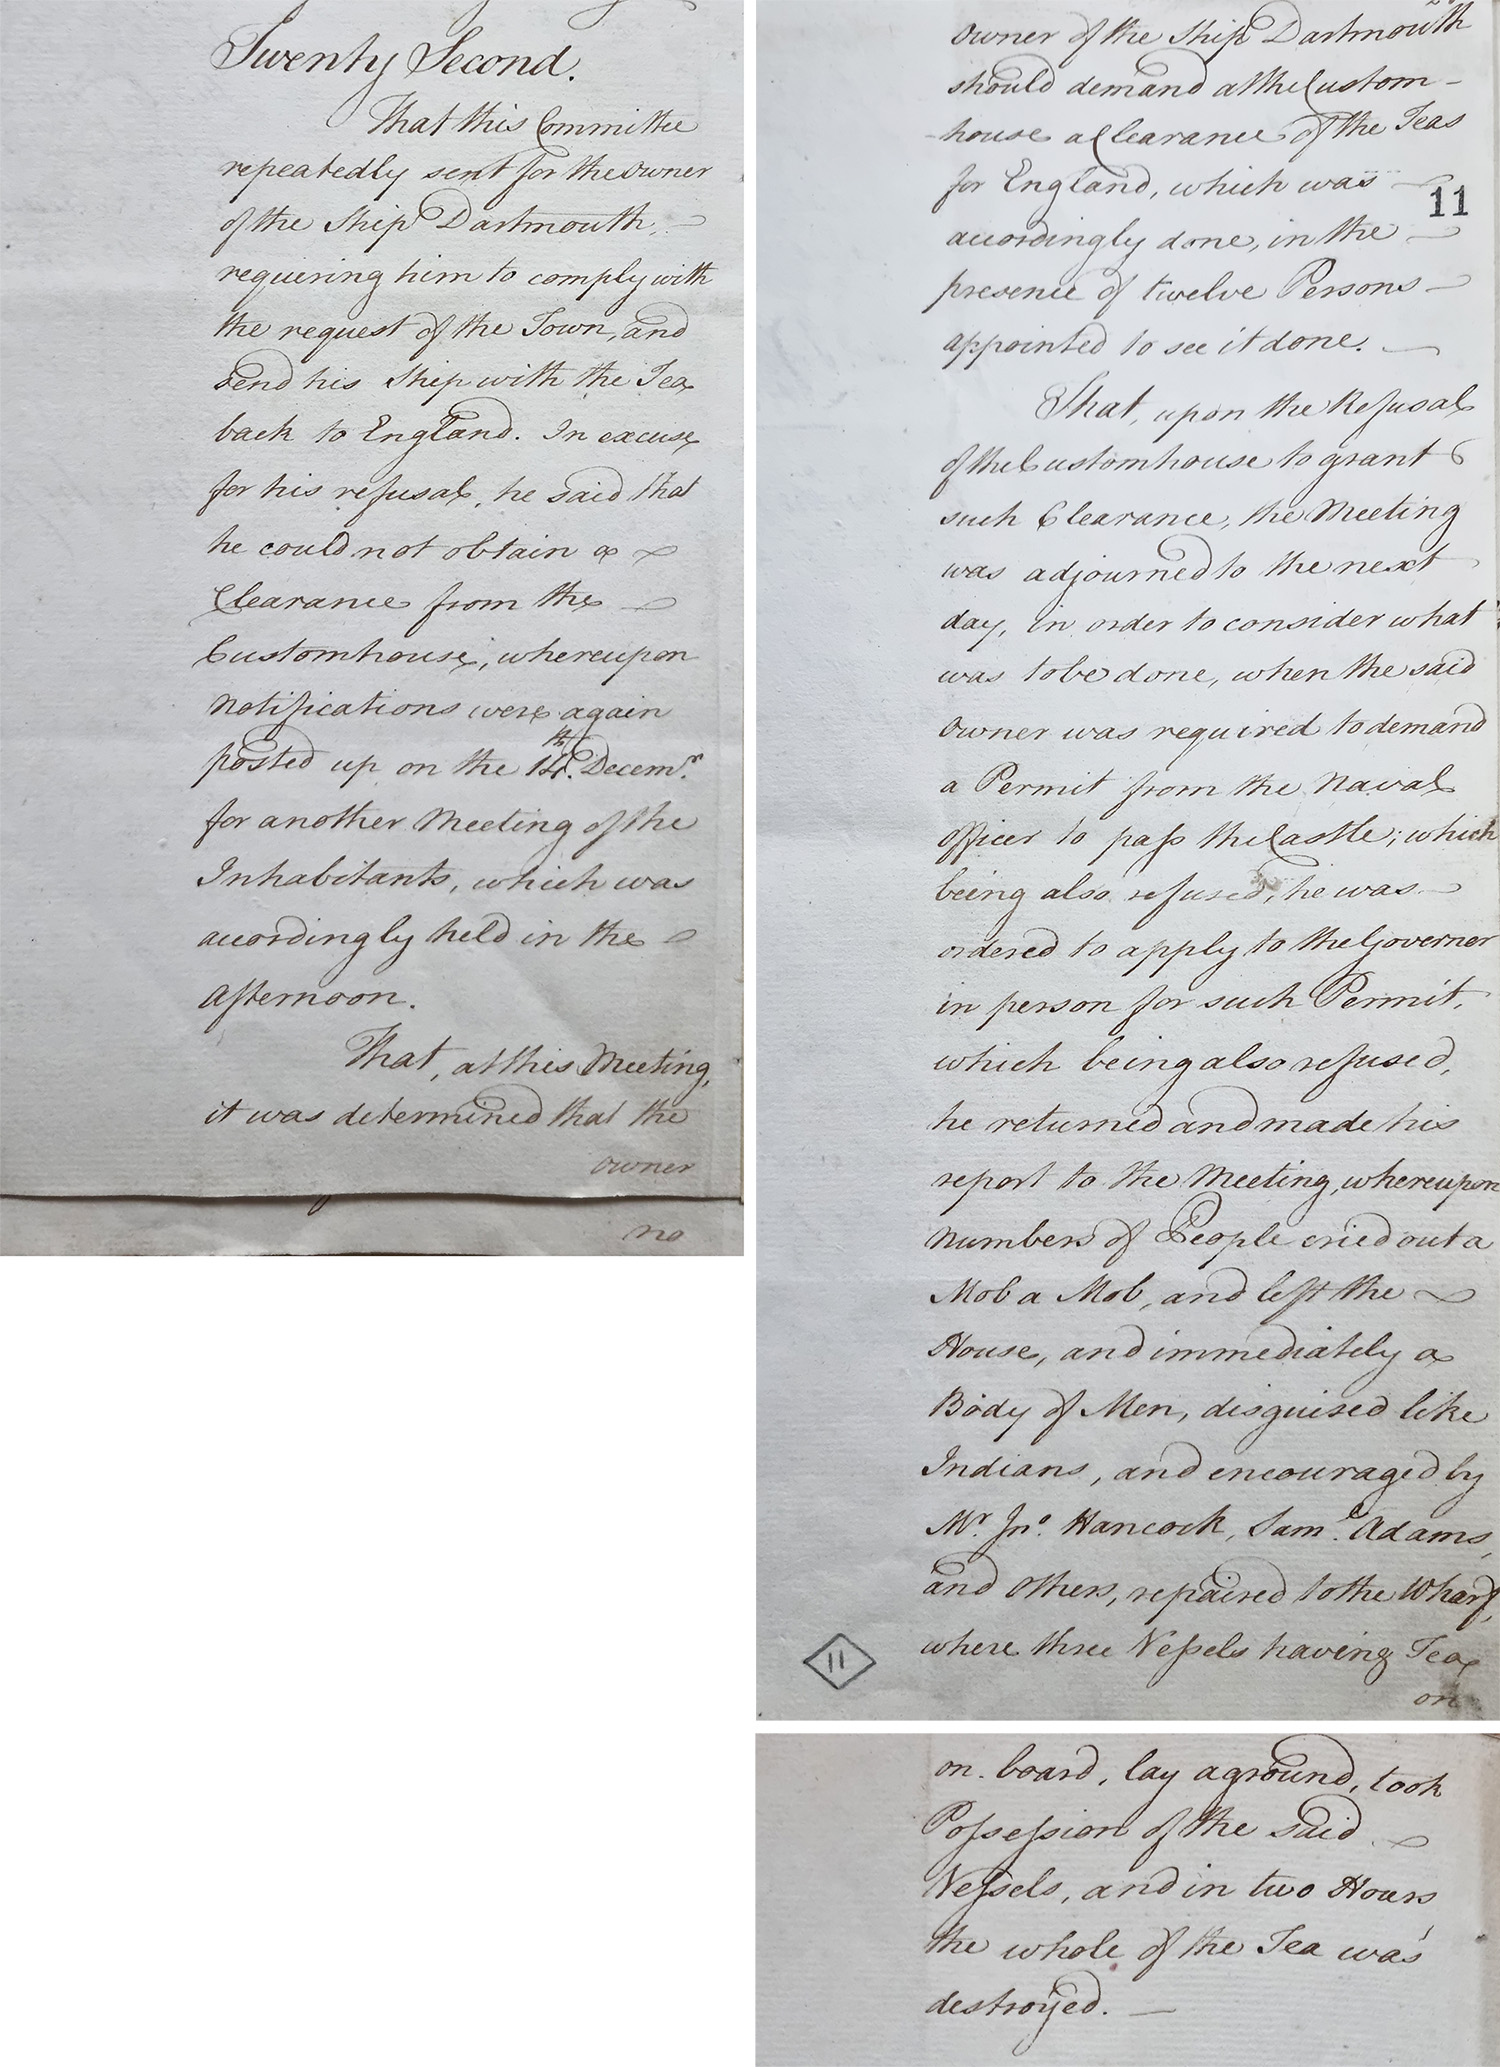 Twenty Second.
That this Committee
repeatedly sent for the Owner
of the Ship Dartmouth,
requiring him to comply with
the request of the Town, and
send his Ship with the Tea
back to England. In excuse
for his refusal, he said that
he could not obtain a
Clearance from the
Customhouse, whereupon
Notifications were again
posted up on the 14th. Decemr.
for another Meeting of the
Inhabitants, which was
accordingly held in the
afternoon.
That, at this Meeting,
it was determined that the
owner
no
Owner of the Ship Dartmouth
should demand at the Custom-
-house a Clearance of the Teas
for England, which was
11
accordingly done, in the
presence of twelve Persons
appointed to see it done.
That, upon the Refusal
of the Customhouse to grant
such Clearance, the Meeting
was adjourned to the next
day, in order to consider what
was to be done, when the said
Owner was required to demand
a Permit from the Naval
Officer to pass the Castle; which
being also refused, he was
ordered to apply to the Governor
in person for such Permit,
which being also refused,
he returned and made his
report to the Meeting, whereupon
Numbers of People cried out a
Mob a Mob, and left the
House, and immediately a
Body of Men, disguised like
Indians, and encouraged by
Mr. Jno. Hancock, Saml. Adams,
and Others, repaired to the Wharf,
where three Vessels having Tea
11
on
on board, lay aground, took
Possession of the said
Vessels, and in two Hours
the whole of the Tea was
destroyed.